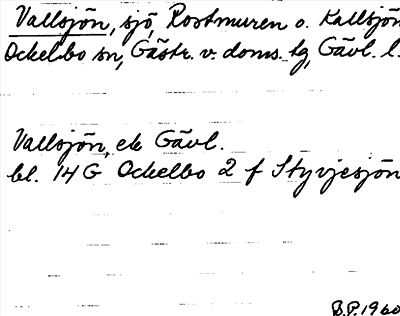 Vallsjön, sjö, Rostmuren o. Kallsjön
Ockelbo sn, Gästr. v. doms. tg, Gävl. l.
Vallsjön, ek Gävl.
bl. 14G Ockelbo 2 f Styvjesjön
B.P. 1960